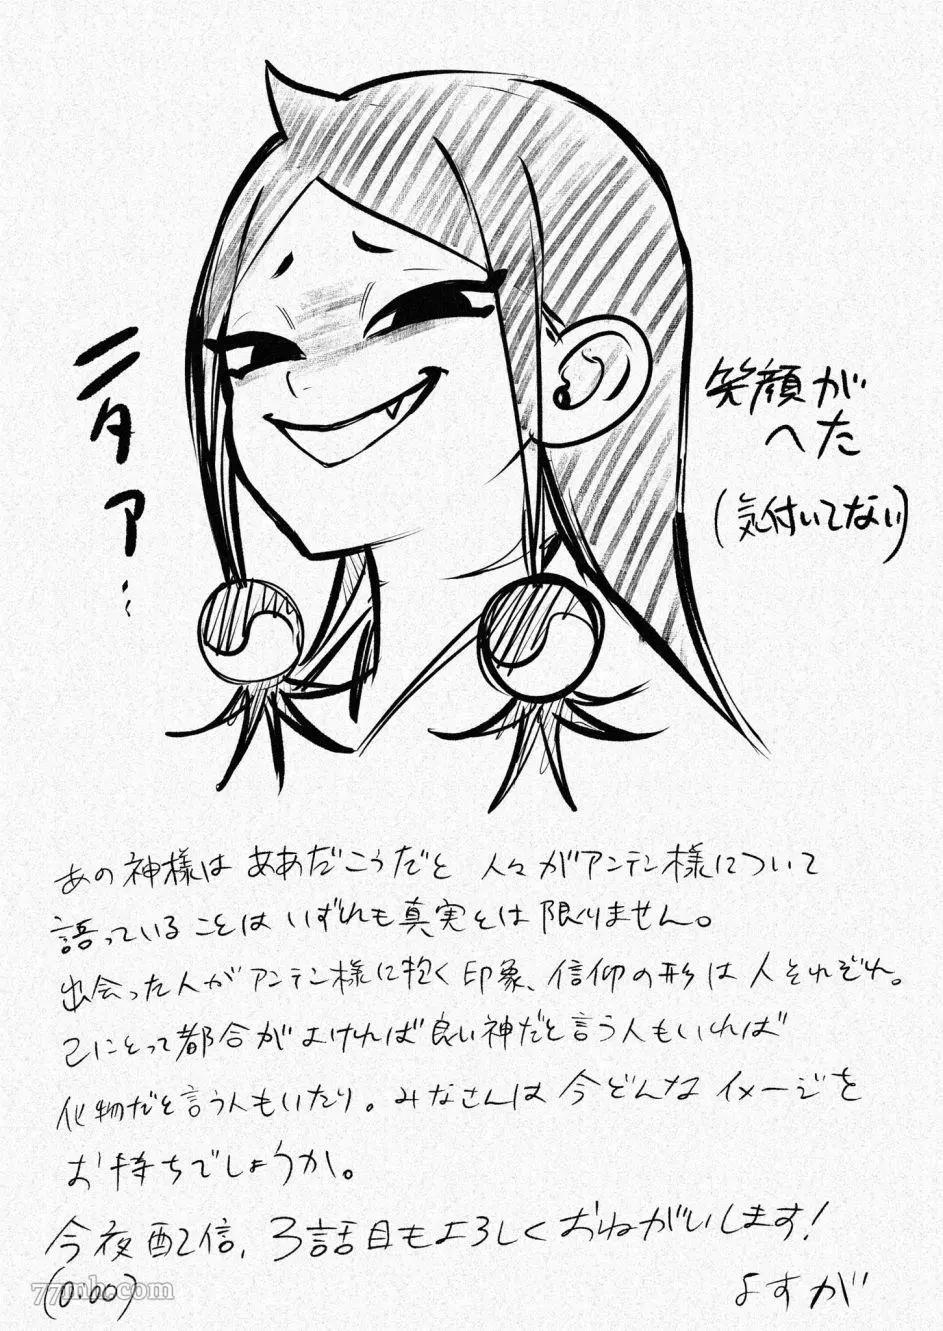 ニタァ…
笑顔が
へた
(気付いてない)
あの神様は ああだこうだと 人々がアンテン様について
語っていることは いずれも真実とは限りません。
出会った人がアンテン様に抱く印象、信仰の形は人それぞれ。
己にとって都合がよければ良い神だと言う人もいれば
化物だと言う人もいたり。みなさんは今どんなイメージを
お持ちでしょうか。
今夜配信、3話目もよろしくおねがいします!
(0:00)
よすが
77mh.com